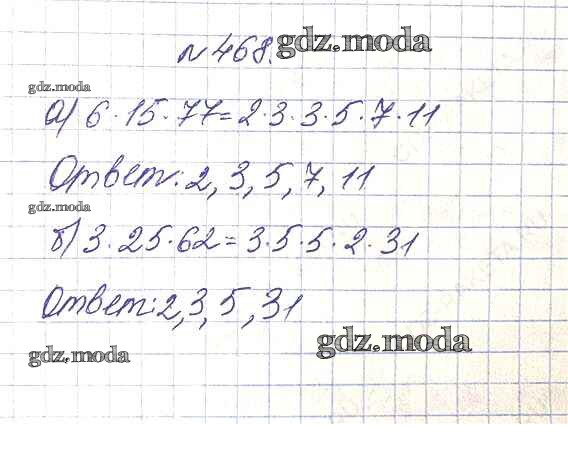 №468. gdz.moda
gdz.moda
а) 6·15·77=2·3·3·5·7·11
Ответ: 2, 3, 5, 7, 11
gdz.moda
б) 3·25·62=3·5·5·2·31
Ответ: 2, 3, 5, 31
gdz.moda
gdz.moda